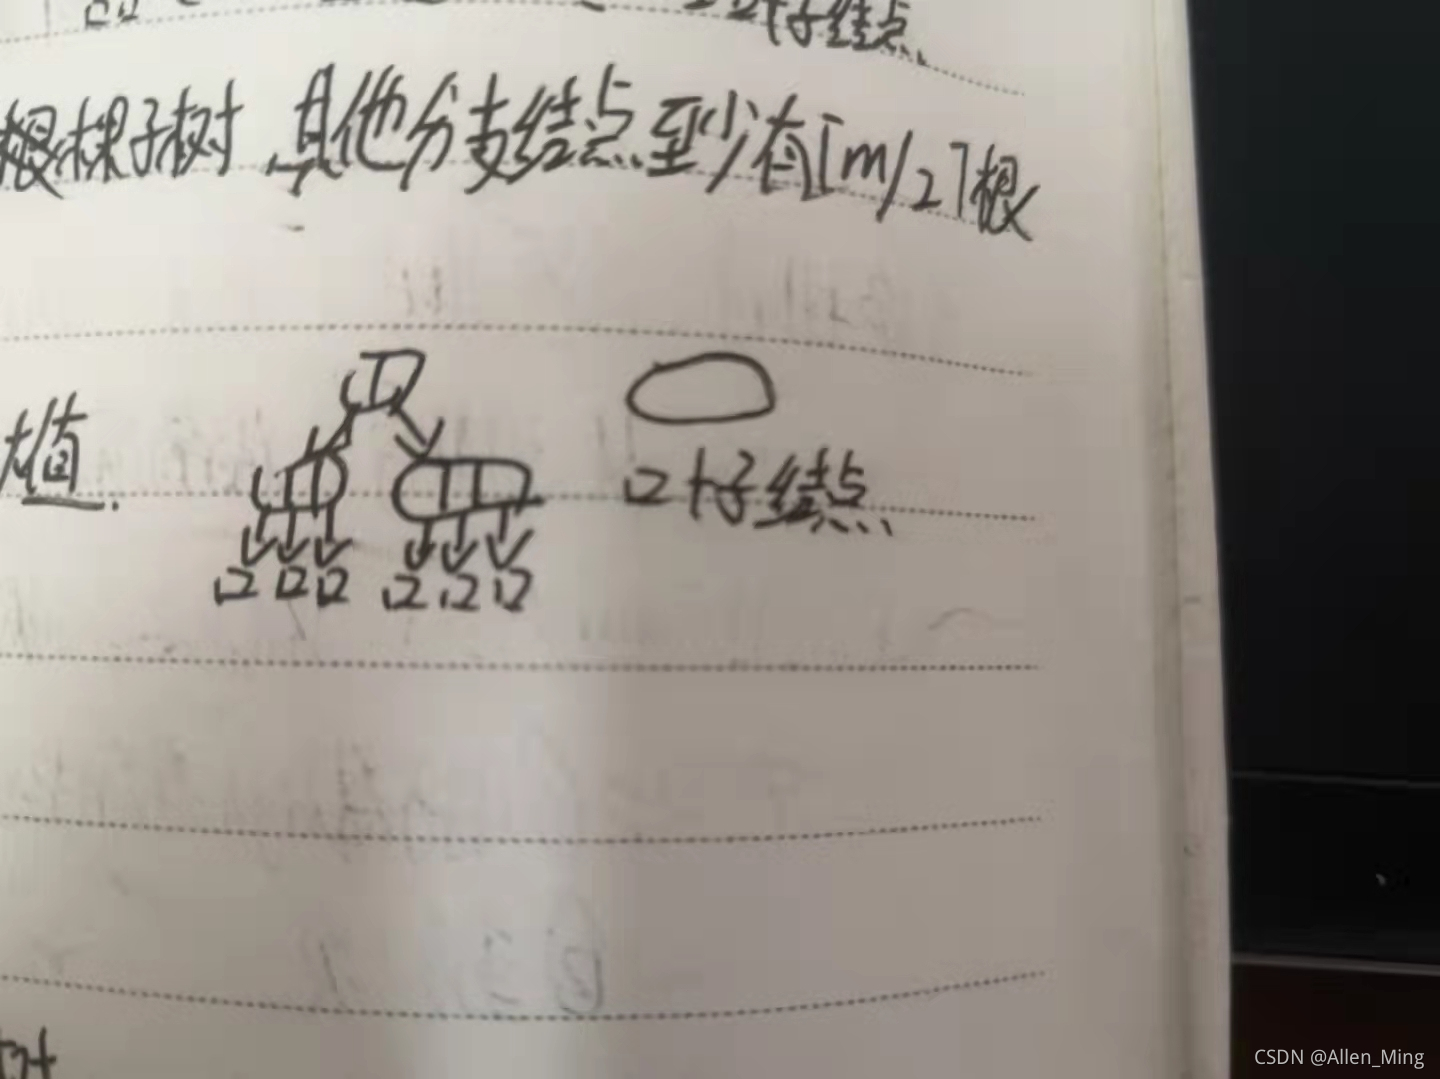 叶子结点
根棵子树,其他分支结点至少有⌈m/2⌉根
大值.
口叶子结点
树
CSDN @Allen_Ming